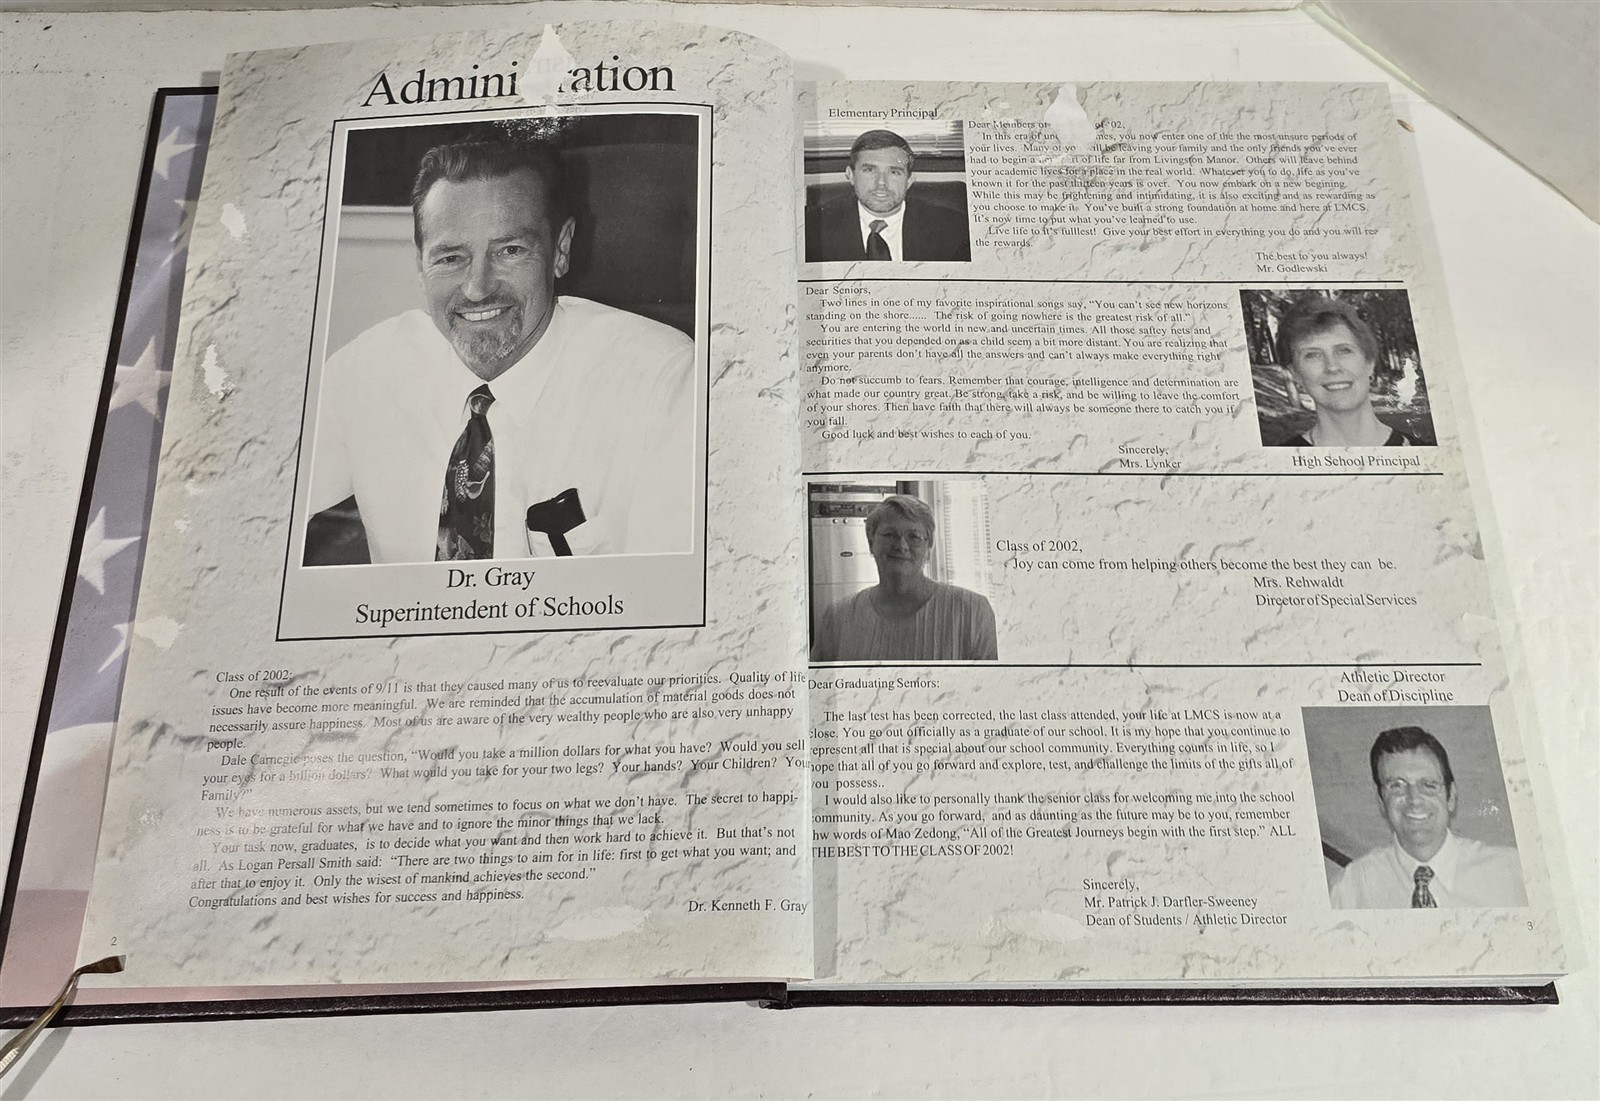 Admini ration
Dr. Gray
Superintendent of Schools
Class of 2002:
One result of the events of 9/11 is that they caused many of us to reevaluate our priorities. Quality of life
issues have become more meaningful. We are reminded that the accumulation of material goods does not
necessarily assure happiness. Most of us are aware of the very wealthy people who are also very unhappy
people.
Dale Carnegie poses the question, "Would you take a million dollars for what you have? Would you sell
your eyes for a billion dollars? What would you take for your two legs? Your hands? Your Children? Your
Family?"
We have numerous assets, but we tend sometimes to focus on what we don't have. The secret to happi-
ness is to be grateful for what we have and to ignore the minor things that we lack.
Your task now, graduates, is to decide what you want and then work hard to achieve it. But that's not
all. As Logan Persall Smith said: "There are two things to aim for in life: first to get what you want; and
after that to enjoy it. Only the wisest of mankind achieves the second."
Congratulations and best wishes for success and happiness.
Dr. Kenneth F. Gray
2
Elementary Principal
Dear Members of '02,
In this era of mes, you now enter one of the the most unsure periods of
your lives. Many of yo ill be leaving your family and the only friends you've ever
had to begin a of life far from Livingston Manor. Others will leave behind
your academic lives for a place in the real world. Whatever you to do, life as you've
known it for the past thirteen years is over. You now embark on a new begining.
While this may be frightening and intimidating, it is also exciting and as rewarding as
you choose to make it. You've built a strong foundation at home and here at LMCS.
It's now time to put what you've learned to use.
Live life to it's fulllest! Give your best effort in everything you do and you will re
the rewards.
The best to you always!
Mr. Godlewski
Dear Seniors,
Two lines in one of my favorite inspirational songs say, "You can't see new horizons
standing on the shore...... The risk of going nowhere is the greatest risk of all."
You are entering the world in new and uncertain times. All those saftey nets and
securities that you depended on as a child seem a bit more distant. You are realizing that
even your parents don't have all the answers and can't always make everything right
anymore.
Do not succumb to fears. Remember that courage, intelligence and determination are
what made our country great. Be strong, take a risk, and be willing to leave the comfort
of your shores. Then have faith that there will always be someone there to catch you if
you fall.
Good luck and best wishes to each of you.
Sincerely,
Mrs. Lynker
High School Principal
Class of 2002,
Joy can come from helping others become the best they can be.
Mrs. Rehwaldt
Director of Special Services
Athletic Director
Dean of Discipline
Dear Graduating Seniors:
The last test has been corrected, the last class attended, your life at LMCS is now at a
close. You go out officially as a graduate of our school. It is my hope that you continue to
epresent all that is special about our school community. Everything counts in life, so I
hope that all of you go forward and explore, test, and challenge the limits of the gifts all of
you possess..
I would also like to personally thank the senior class for welcoming me into the school
community. As you go forward, and as daunting as the future may be to you, remember
hw words of Mao Zedong, "All of the Greatest Journeys begin with the first step." ALL
THE BEST TO THE CLASS OF 2002!
Sincerely,
Mr. Patrick J. Darfler-Sweeney
Dean of Students / Athletic Director
3